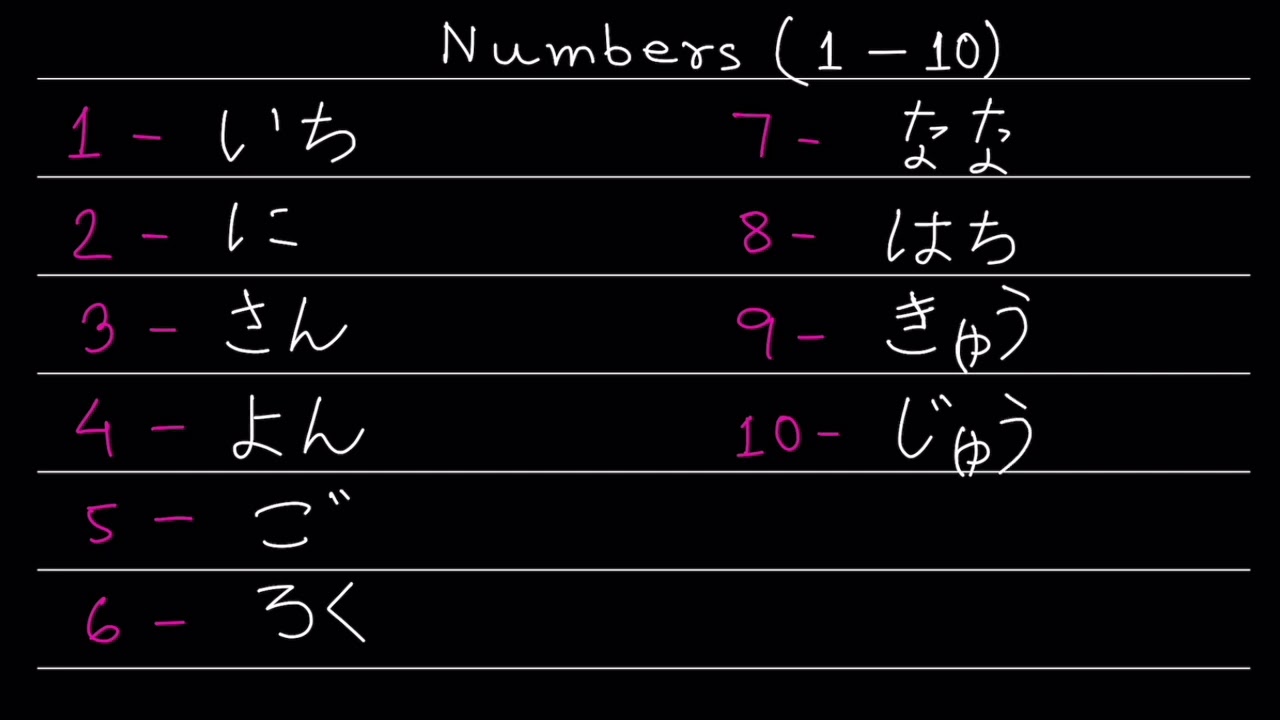 Numbers (1 - 10)
1 - いち
2 - に
3 - さん
4 - よん
5 - ご
6 - ろく
7 - なな
8 - はち
9 - きゅう
10 - じゅう